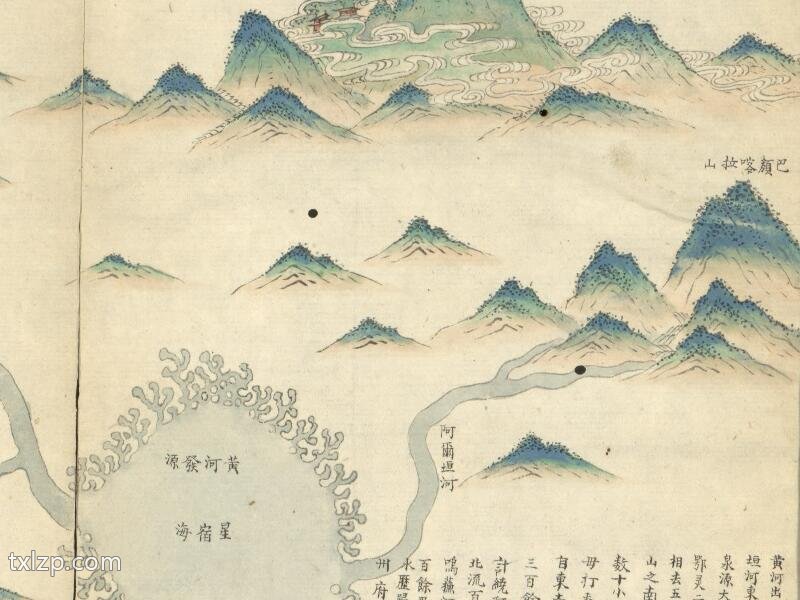 巴顏喀拉山
阿爾坦河
黃河發源
星宿海
黃河出
垣河東
泉源大
鄂灵二
相去五
山之南
數十小
三百餘
計統
北流百
百餘里
州府
txlzp.com